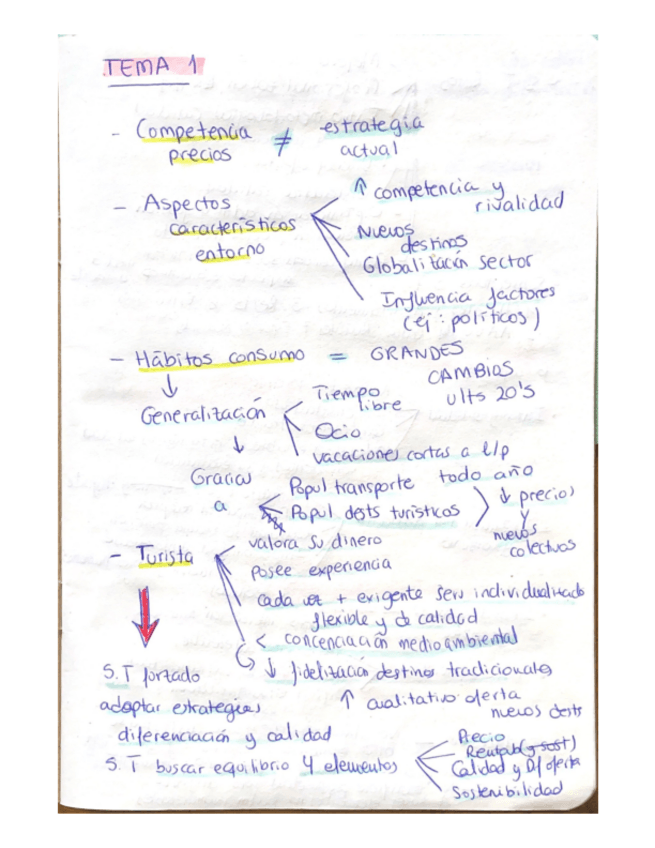 TEMA 1
- Competencia precios ≠ estrategia actual
- Aspectos característicos entorno
↑ competencia y rivalidad
Nuevos destinos
Globalización sector
Influencia factores
(ej: políticos)
- Hábitos consumo = GRANDES CAMBIOS ults 20's
↓
Generalización
Tiempo libre
Ocio
vacaciones cortas a l/p todo año
↓
Gracias a
Popul transporte
Popul dests turísticos
↓ precios y nuevos colectivos
- Turista
valora su dinero
posee experiencia
cada vez + exigente serv individualizado
flexible y de calidad
< concenciación medioambiental
↓ fidelización destinos tradicionales
↑ cualitativo oferta
nuevos dests
S.T forzado
adoptar estrategias
diferenciación y calidad
S.T buscar equilibrio 4 elementos
Precio
Rentab(y sost)
Calidad y D/ oferta
Sostenibilidad